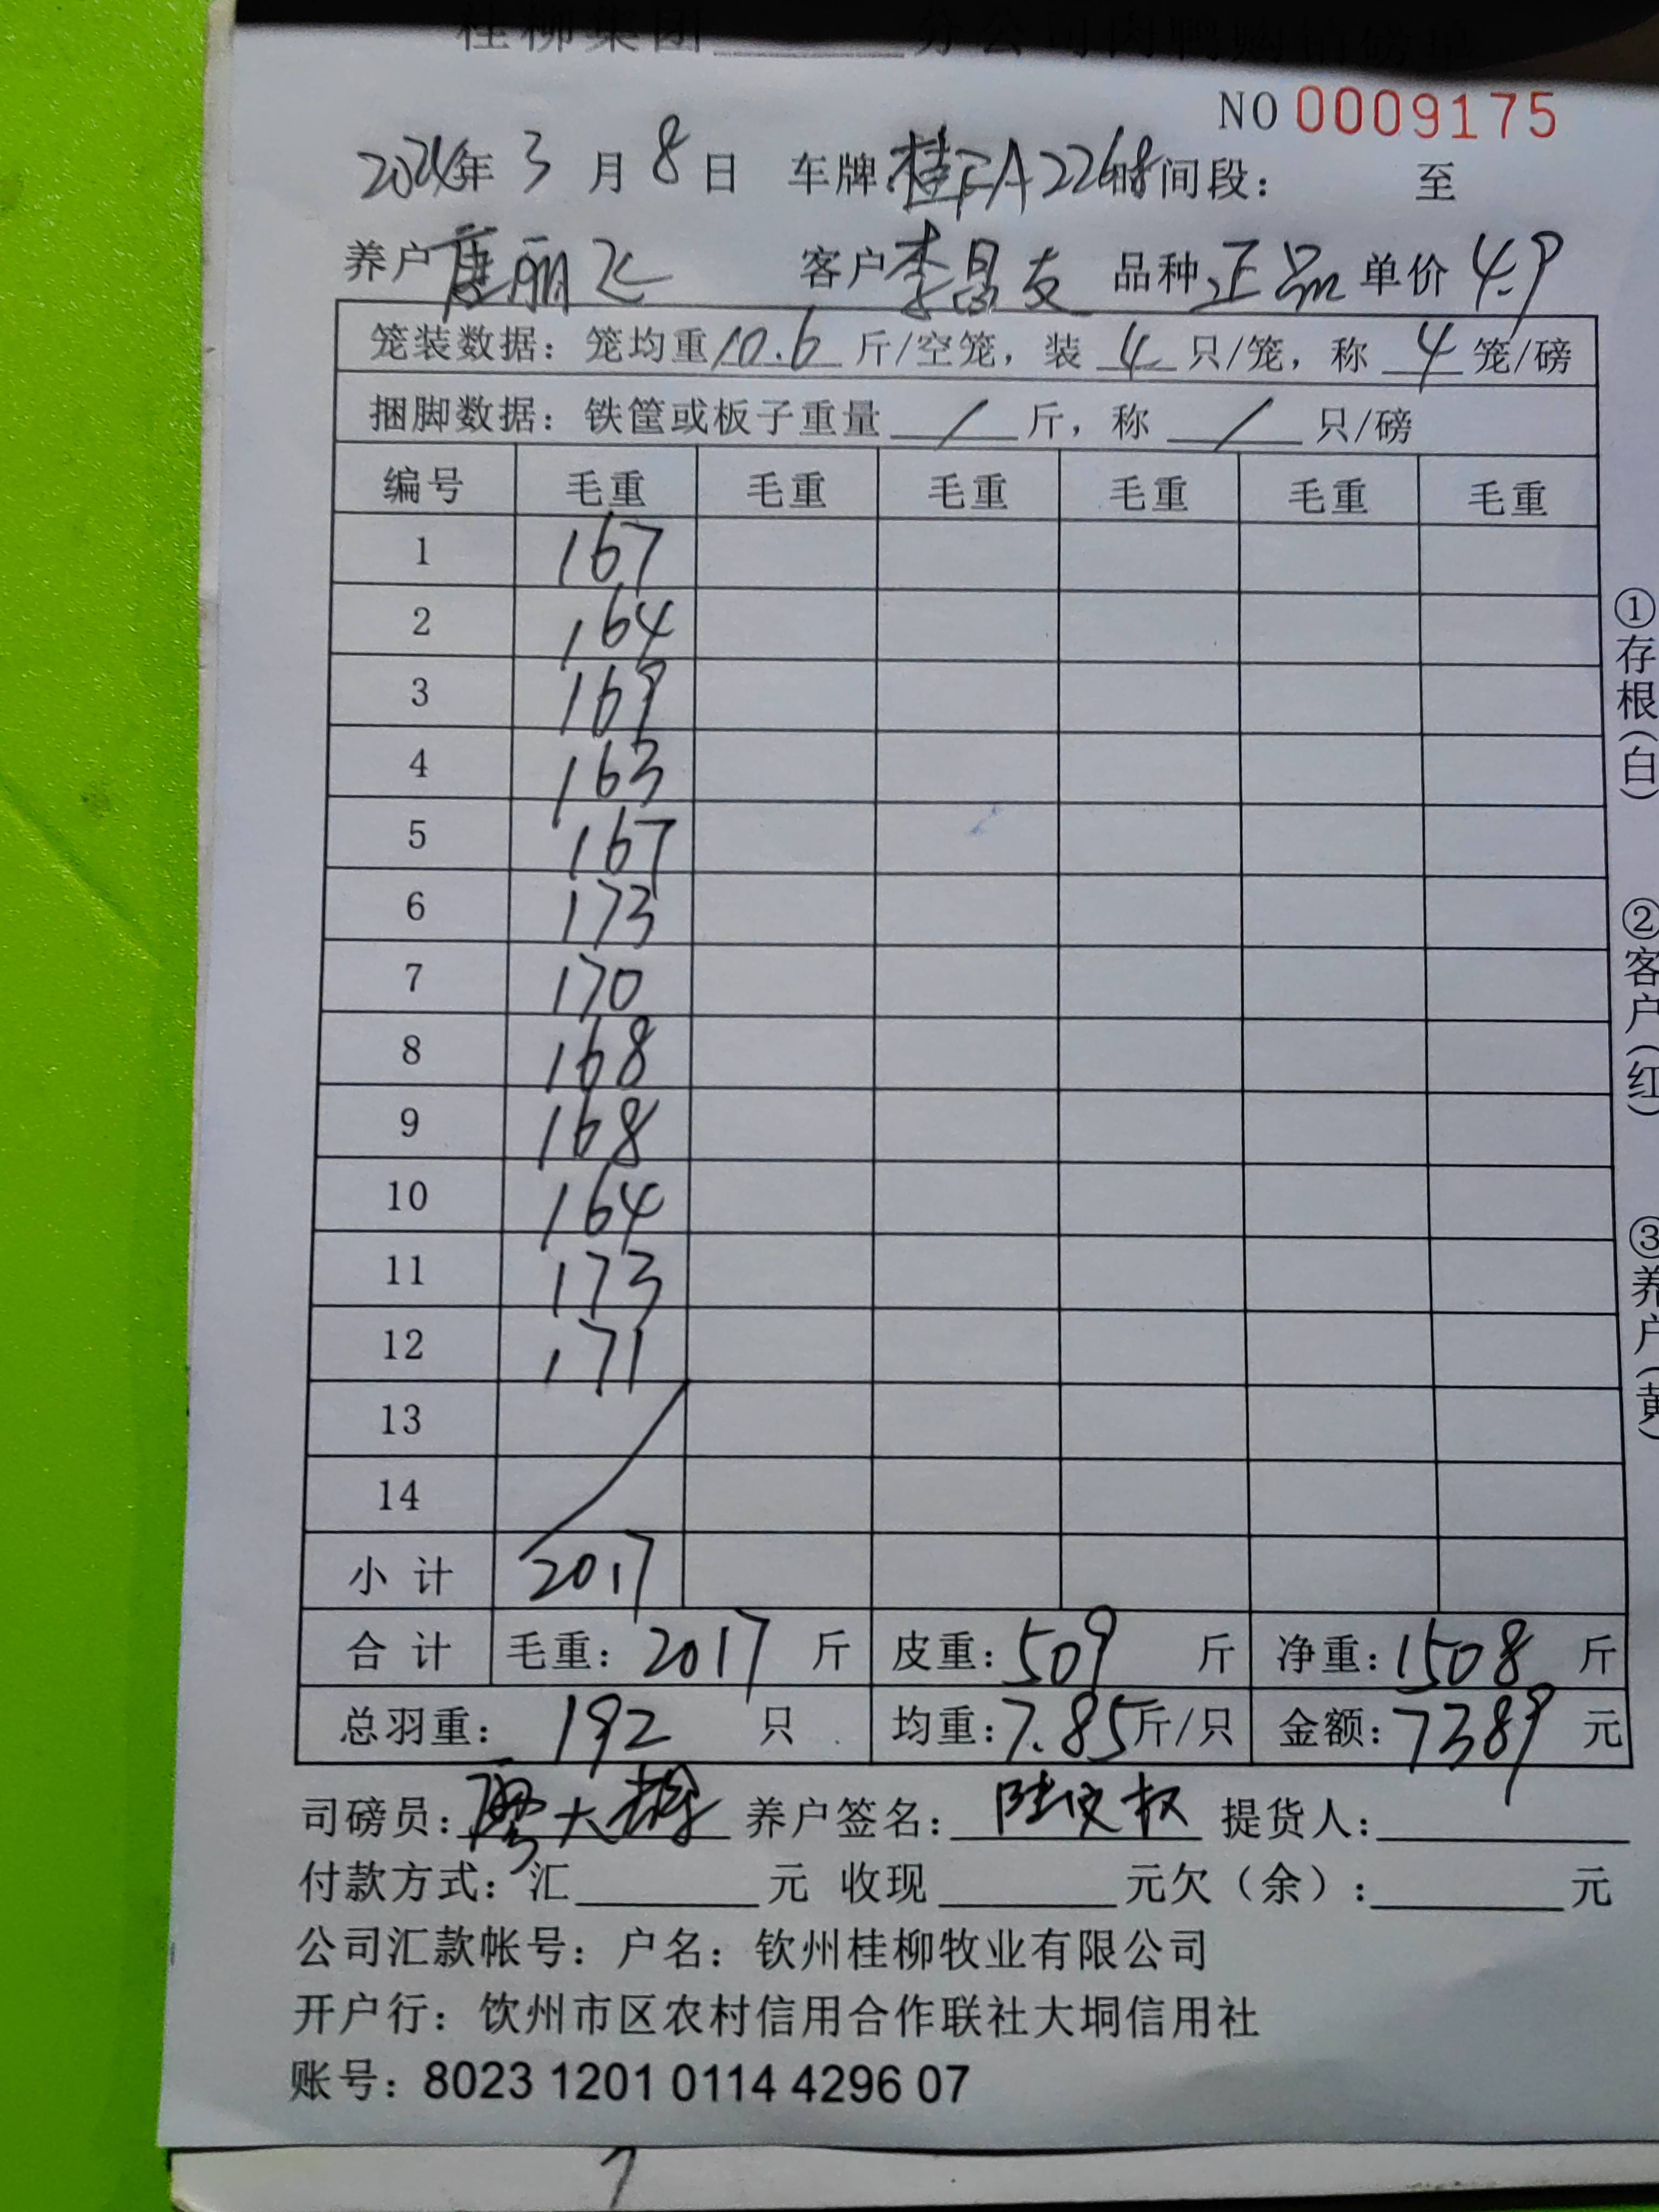 桂柳集团 分公司肉鸭购销磅单
NO 0009175
2024年 3 月 8 日 车牌:桂FA2268时间段: 至
养户 唐丽飞 客户 李昌友 品种 正品 单价 4.9
笼装数据：笼均重 10.6 斤/空笼，装 4 只/笼，称 4 笼/磅
捆脚数据：铁筐或板子重量 / 斤，称 / 只/磅
编号 毛重 毛重 毛重 毛重 毛重 毛重
1 167
2 164
3 169
4 163
5 167
6 173
7 170
8 168
9 168
10 164
11 173
12 171
13
14
小 计 2017
合 计 毛重：2017 斤 皮重：509 斤 净重：1508 斤
总羽重：192 只 均重：7.85斤/只 金额：7389 元
司磅员：廖大 养户签名：陆文权 提货人：
付款方式：汇 元 收现 元欠（余）： 元
公司汇款帐号：户名：钦州桂柳牧业有限公司
开户行：钦州市区农村信用合作联社大垌信用社
账号：8023 1201 0114 4296 07
①存根(白)
②客户(红)
③养户(黄)
7